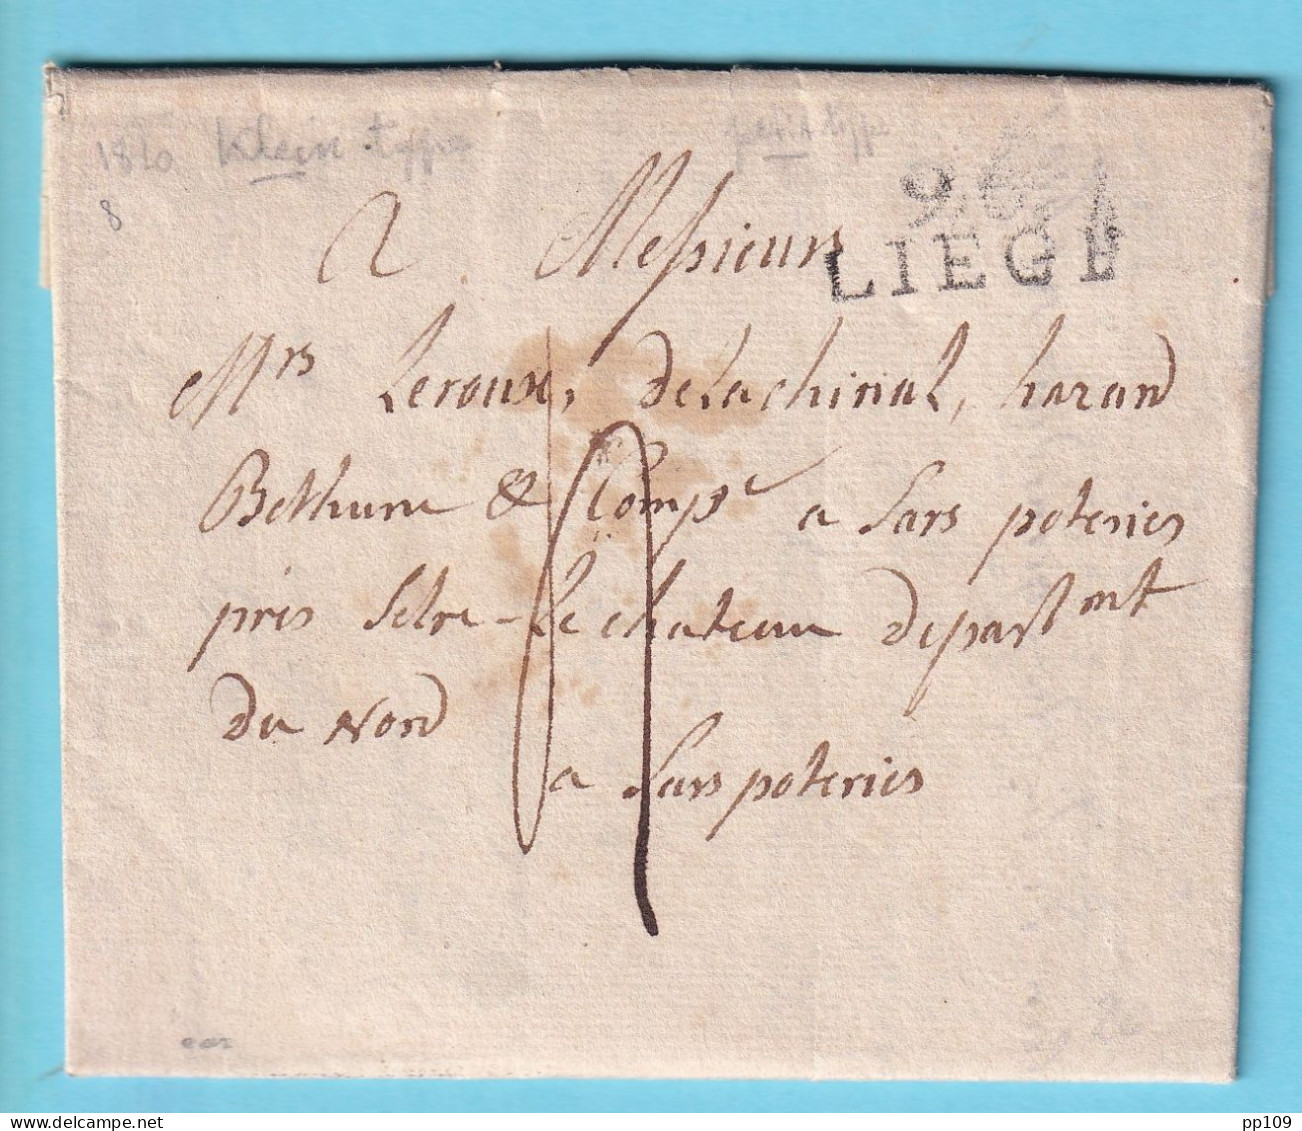 1810 Klein type petit type
8
96
LIEGE
A Messieurs
Mrs Leroux, Delachinal, harand
Bethune & Compe a Sars poteries
près Solre-le chateau depastmt
du Nord
a Sars poteries
pp109